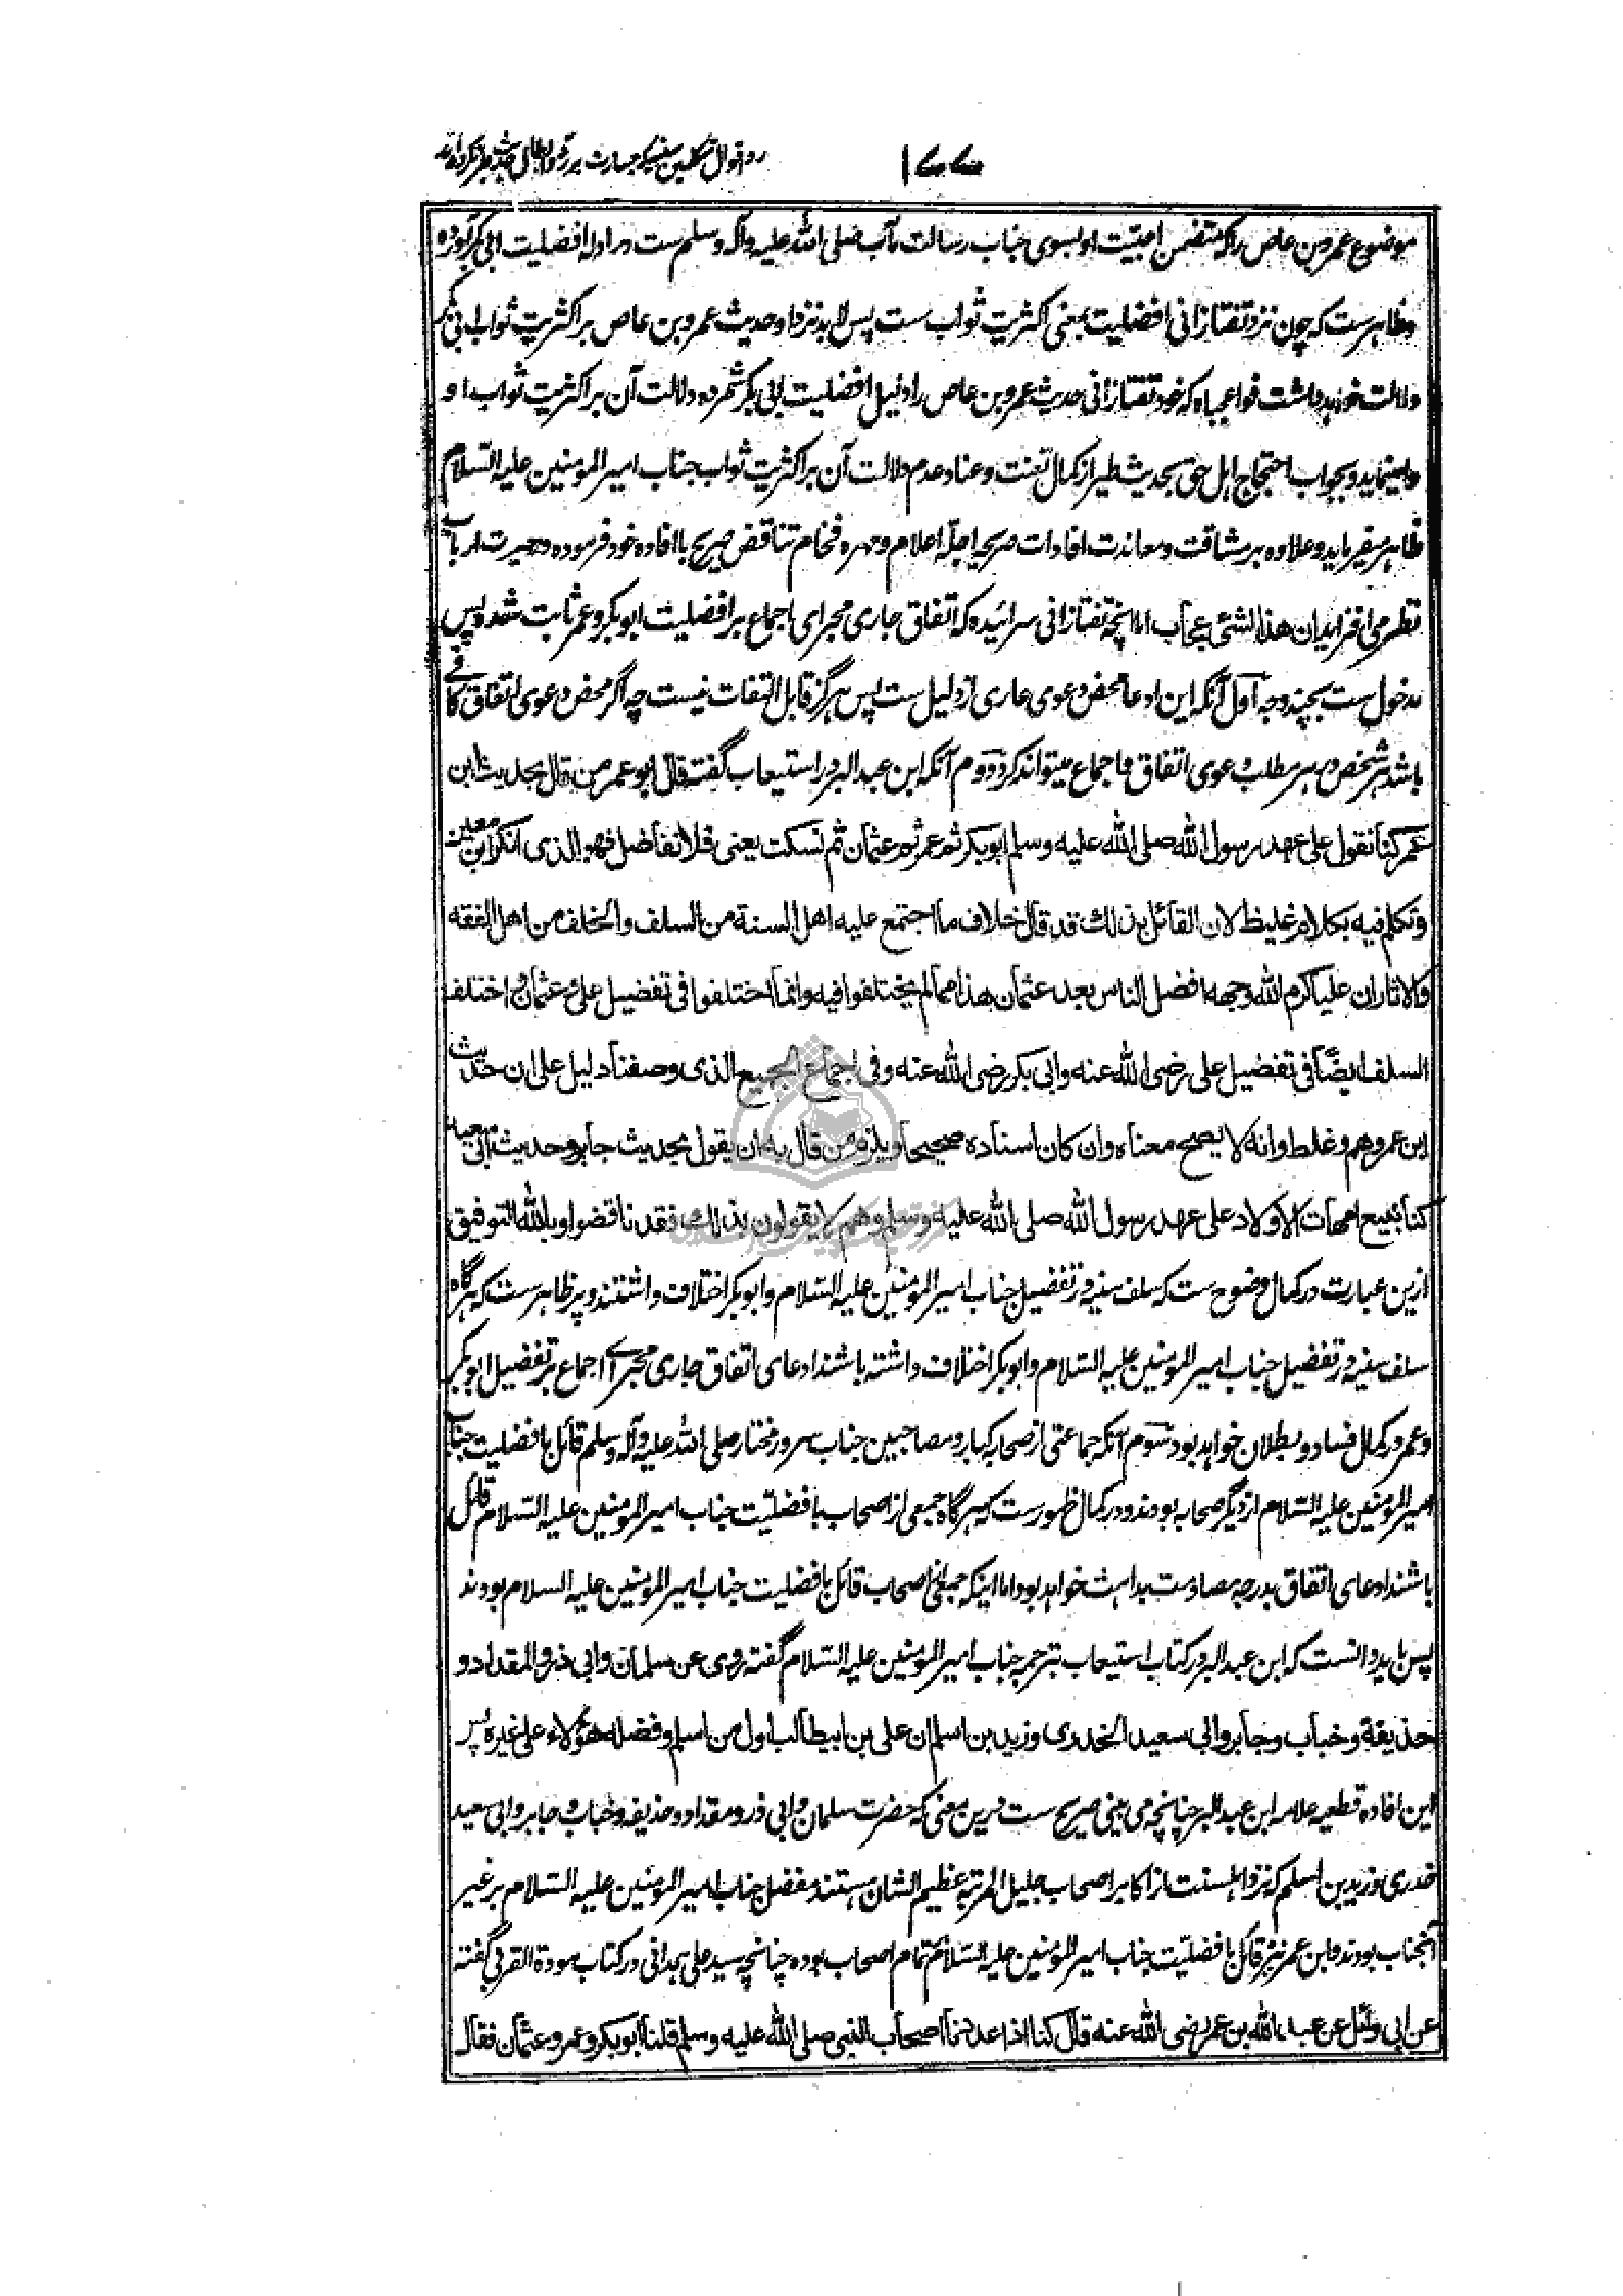 رد اقوال متکلمین سنیه که جسارت بر رد و ابطال حدیث طیر کرده‌اند
۱۷۷
موضوع عمرو بن عاص را که متضمن احبیت او بسوی جناب رسالت مآب صلی الله علیه وآله وسلم ست در ادله افضلیت ابی بکر آورده
وظاهرست که چون نزد تفتازانی افضلیت بمعنی اکثریت ثواب ست پس لابد نزد او حدیث عمرو بن عاص بر اکثریت ثواب ابی بکر
دلالت خواهد داشت فواعجباه که خود تفتازانی حدیث عمرو بن عاص را دلیل افضلیت ابی بکر شمرده دلالت آن بر اکثریت ثواب او
وامینماید و بجواب احتجاج اهل حق بحدیث طیر از کمال تعنت و عناد عدم دلالت آن بر اکثریت ثواب جناب امیر المؤمنین علیه السلام
ظاهر میفرماید و علاوه بر مشاقت و معاندت افادات صریحه اجله اعلام و مهره فخام تناقض صریح با افاده خود فرموده و حیرت ارباب
نظر می افزاید ان هذا لشئ عجاب اما آنچه تفتازانی سرائیده که اتفاق جاری مجرای اجماع بر افضلیت ابوبکر و عمر ثابت شده پس
مدخول ست بچند وجه اول آنکه این ادعا محض دعوی عاری از دلیل ست پس هرگز قابل التفات نیست چه اگر محض دعوی اتفاق کافی
باشد هر شخص در هر مطلب دعوی اتفاق و اجماع میتواند کرد دوم آنکه ابن عبد البر در استیعاب گفته قال ابو عمر من قال بحدیث ابن
عمر کنا نقول علی عهد رسول الله صلی الله علیه وسلم ابوبکر ثم عمر ثم عثمان ثم نسکت یعنی فلا نفاضل فهو الذی انکر ابن معین
وتکلم فیه بکلام غلیظ لان القائل بذلك قد قال خلاف ما اجتمع علیه اهل السنة من السلف والخلف من اهل الفقه
والآثار ان علیا کرم الله وجهه افضل الناس بعد عثمان هذا مما لم یختلفوا فیه وانما اختلفوا فی تفضیل علی وعثمان واختلف
السلف ایضًا فی تفضیل علی رضی الله عنه وابی بکر رضی الله عنه وفی اجماع الجمیع الذی وصفنا دلیل علی ان حدیث
ابن عمر وهم وغلط وانه لا یصح معناه وان کان اسناده صحیحا ویلزم من قال به ان یقول بحدیث جابر وحدیث ابی سعید
کنا نبیع امهات الاولاد علی عهد رسول الله صلی الله علیه وسلم وهم لا یقولون بذلك فقد ناقضوا وبالله التوفیق
ازین عبارت در کمال وضوح ست که سلف سنیه در تفضیل جناب امیر المؤمنین علیه السلام و ابوبکر اختلاف داشتند و پر ظاهر ست که هرگاه
سلف سنیه در تفضیل جناب امیر المؤمنین علیه السلام و ابوبکر اختلاف داشته باشند ادعای اتفاق جاری مجرای اجماع بر تفضیل ابوبکر
و عمر در کمال فساد و بطلان خواهد بود سوم آنکه جماعتی از صحابه کبار و مصاحبین جناب سرور مختار صلی الله علیه وآله وسلم قائل بافضلیت جناب
امیر المؤمنین علیه السلام از دیگر صحابه بودند و در کمال ظهور ست که هرگاه جمعی از اصحاب بافضلیت جناب امیر المؤمنین علیه السلام قائل
باشند ادعای اتفاق بدرجه مصادمت بداهت خواهد بود اما اینکه جمعی از اصحاب قائل بافضلیت جناب امیر المؤمنین علیه السلام بودند
پس باید دانست که ابن عبد البر در کتاب استیعاب بترجمه جناب امیر المؤمنین علیه السلام گفته روی عن سلمان وابی ذر والمقداد و
حذیفة وخباب وجابر وابی سعید الخدری وزید بن اسلم ان علی بن ابیطالب اول من اسلم وفضله هؤلاء علی غیره پس
این افاده قطعیه علامه ابن عبد البر چنانچه می بینی صریح ست درین معنی که حضرت سلمان و ابی ذر و مقداد و حذیفه و خباب و جابر و ابی سعید
خدری و زید بن اسلم که نزد اهلسنت از اکابر اصحاب جلیل المرتبه عظیم الشان هستند مفضل جناب امیر المؤمنین علیه السلام بر غیر
آنجناب بودند و ابن عمر نیز قائل بافضلیت جناب امیر المؤمنین علیه السلام بر تمام اصحاب بوده چنانچه سید علی همدانی در کتاب مودة القربی گفته
عن ابی وائل عن عبد الله بن عمر رضی الله عنه قال کنا اذا عددنا اصحاب النبی صلی الله علیه وسلم قلنا ابوبکر وعمر وعثمان فقال